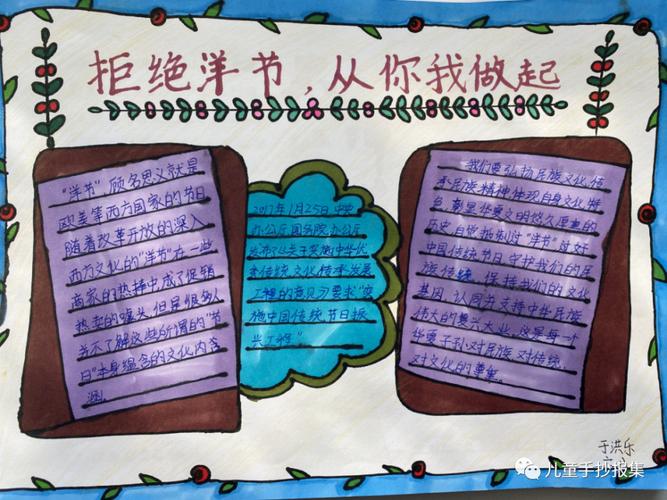 拒绝洋节，从你我做起
“洋节”顾名思义就是
欧美等西方国家的节日
随着改革开放的深入
西方文化的“洋节”在一些
商家的热捧中成了促销
热卖的噱头，但是很多人
并不了解这些所谓的“节
日”本身蕴含的文化内含
涵。
2017年1月25日中央
办公厅国务院办公厅
发布了《关于实施中华优
秀传统文化传承发展
工程的意见》要求“实
施中国传统节日振
兴工程”
我们要弘扬民族文化，传
承民族精神体现自身文化特
色，彰显华夏文明悠久厚重的
历史，自觉抵制过“洋节”过好
中国传统节日，守护我们的民
族传统，保持我们的文化
基因，认同并支持中华民族
伟大的复兴大业，这是每一个
华夏子孙对民族，对传统，
对文化的尊重。
于洪乐
儿童手抄报集